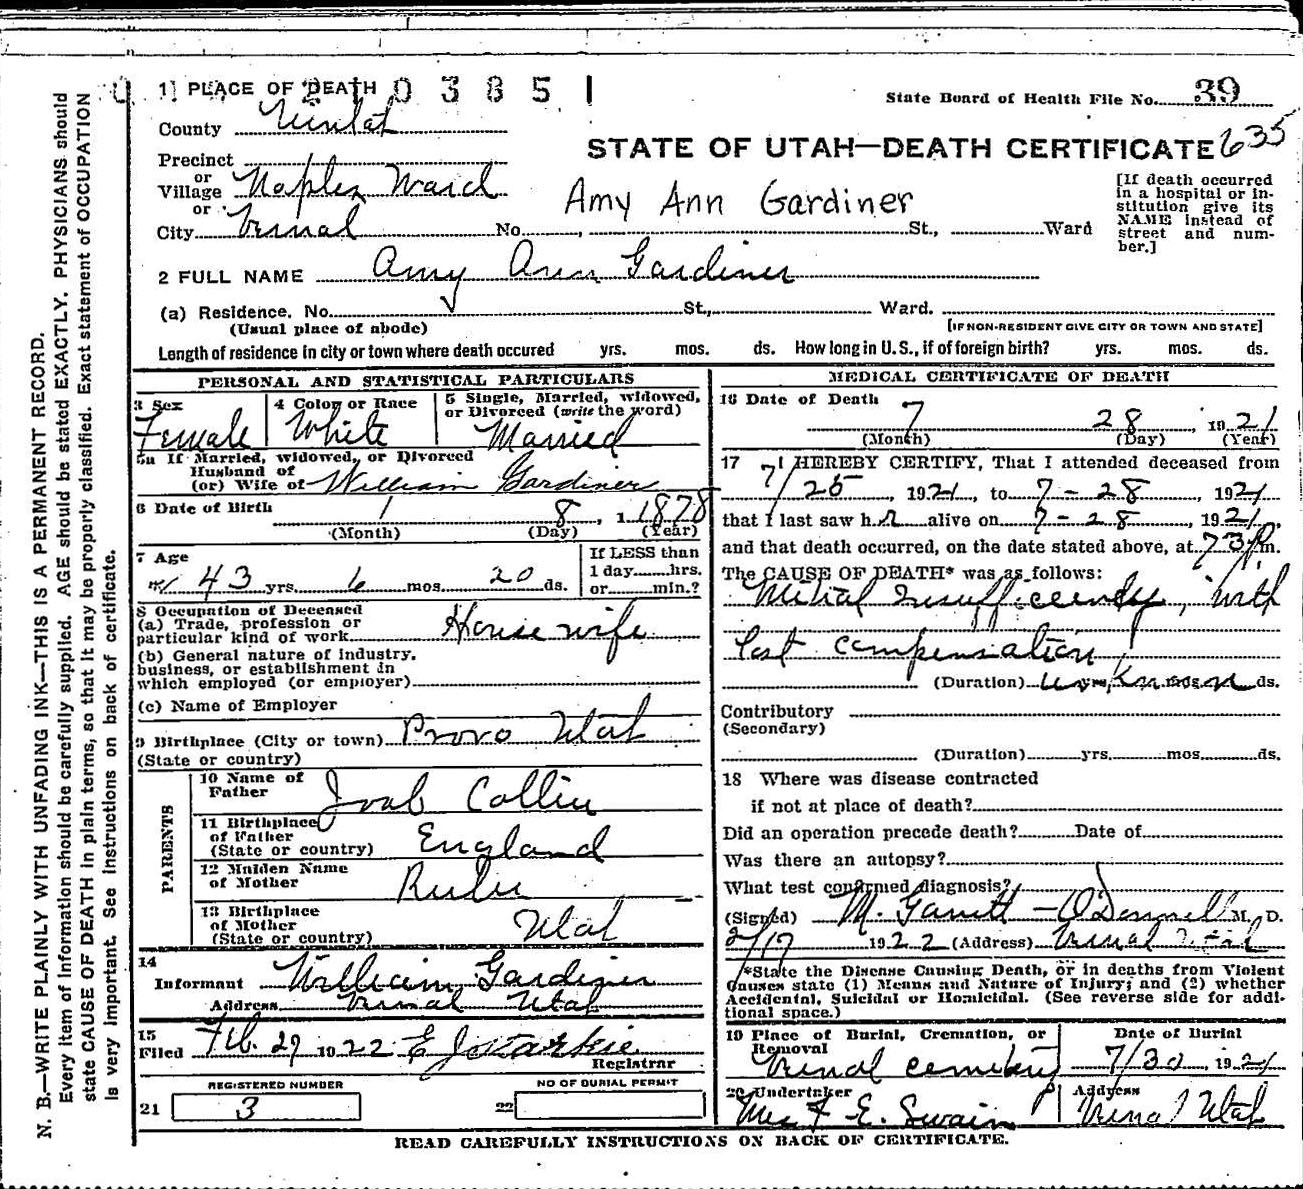 1 PLACE OF DEATH 2 1 0 3 8 5 1
State Board of Health File No. 39
County Uintah
STATE OF UTAH—DEATH CERTIFICATE 635
Precinct
or
Village Naples Ward
or
City Vernal No. St., Ward
Amy Ann Gardiner
[If death occurred
in a hospital or in-
stitution give its
NAME instead of
street and num-
ber.]
2 FULL NAME Amy Ann Gardiner
(a) Residence. No. St., Ward.
(Usual place of abode) [IF NON-RESIDENT GIVE CITY OR TOWN AND STATE]
Length of residence in city or town where death occured yrs. mos. ds. How long in U. S., if of foreign birth? yrs. mos. ds.
PERSONAL AND STATISTICAL PARTICULARS
3 Sex 4 Color or Race 5 Single, Married, widowed,
or Divorced (write the word)
Female White Married
5a If Married, widowed, or Divorced
Husband of
(or) Wife of William Gardiner
6 Date of Birth 1 8, 1 1878
(Month) (Day) (Year)
7 Age
43 yrs. 6 mos. 20 ds.
If LESS than
1 day hrs.
or min.?
8 Occupation of Deceased
(a) Trade, profession or
particular kind of work House wife
(b) General nature of industry,
business, or establishment in
which employed (or employer)
(c) Name of Employer
9 Birthplace (City or town) Provo Utah
(State or country)
PARENTS
10 Name of
Father Joab Collier
11 Birthplace
of Father
(State or country) England
12 Maiden Name
of Mother
13 Birthplace
of Mother
(State or country) Utah
14
Informant William Gardiner
Address Vernal Utah
15
Filed Feb. 27 1922 E J
Registrar
REGISTERED NUMBER NO OF BURIAL PERMIT
21 3 22
MEDICAL CERTIFICATE OF DEATH
16 Date of Death
7 28, 1921
(Month) (Day) (Year)
17 I HEREBY CERTIFY, That I attended deceased from
7/25, 1921, to 7-28, 1921
that I last saw her alive on 7-28, 1921,
and that death occurred, on the date stated above, at 7 3 P. m.
The CAUSE OF DEATH* was as follows:
Mitral Insufficiency, with
lost compensation
(Duration) unknown yrs. mos. ds.
Contributory
(Secondary)
(Duration) yrs. mos. ds.
18 Where was disease contracted
if not at place of death?
Did an operation precede death? Date of
Was there an autopsy?
What test confirmed diagnosis?
(Signed) M. Garrett - O'Donnell M. D.
2/17 1922 (Address) Vernal Utah
*State the Disease Causing Death, or in deaths from Violent
Causes state (1) Means and Nature of Injury; and (2) whether
Accidental, Suicidal or Homicidal. (See reverse side for addi-
tional space.)
19 Place of Burial, Cremation, or
Removal
Vernal Cemetery
Date of Burial
7/30, 1921
20 Undertaker
Mrs F E. Swain
Address
Vernal Utah
READ CAREFULLY INSTRUCTIONS ON BACK OF CERTIFICATE.
N. B.—WRITE PLAINLY WITH UNFADING INK—THIS IS A PERMANENT RECORD.
Every item of Information should be carefully supplied. AGE should be stated EXACTLY. PHYSICIANS should
state CAUSE OF DEATH in plain terms, so that it may be properly classified. Exact statement of OCCUPATION
is very important. See instructions on back of certificate.